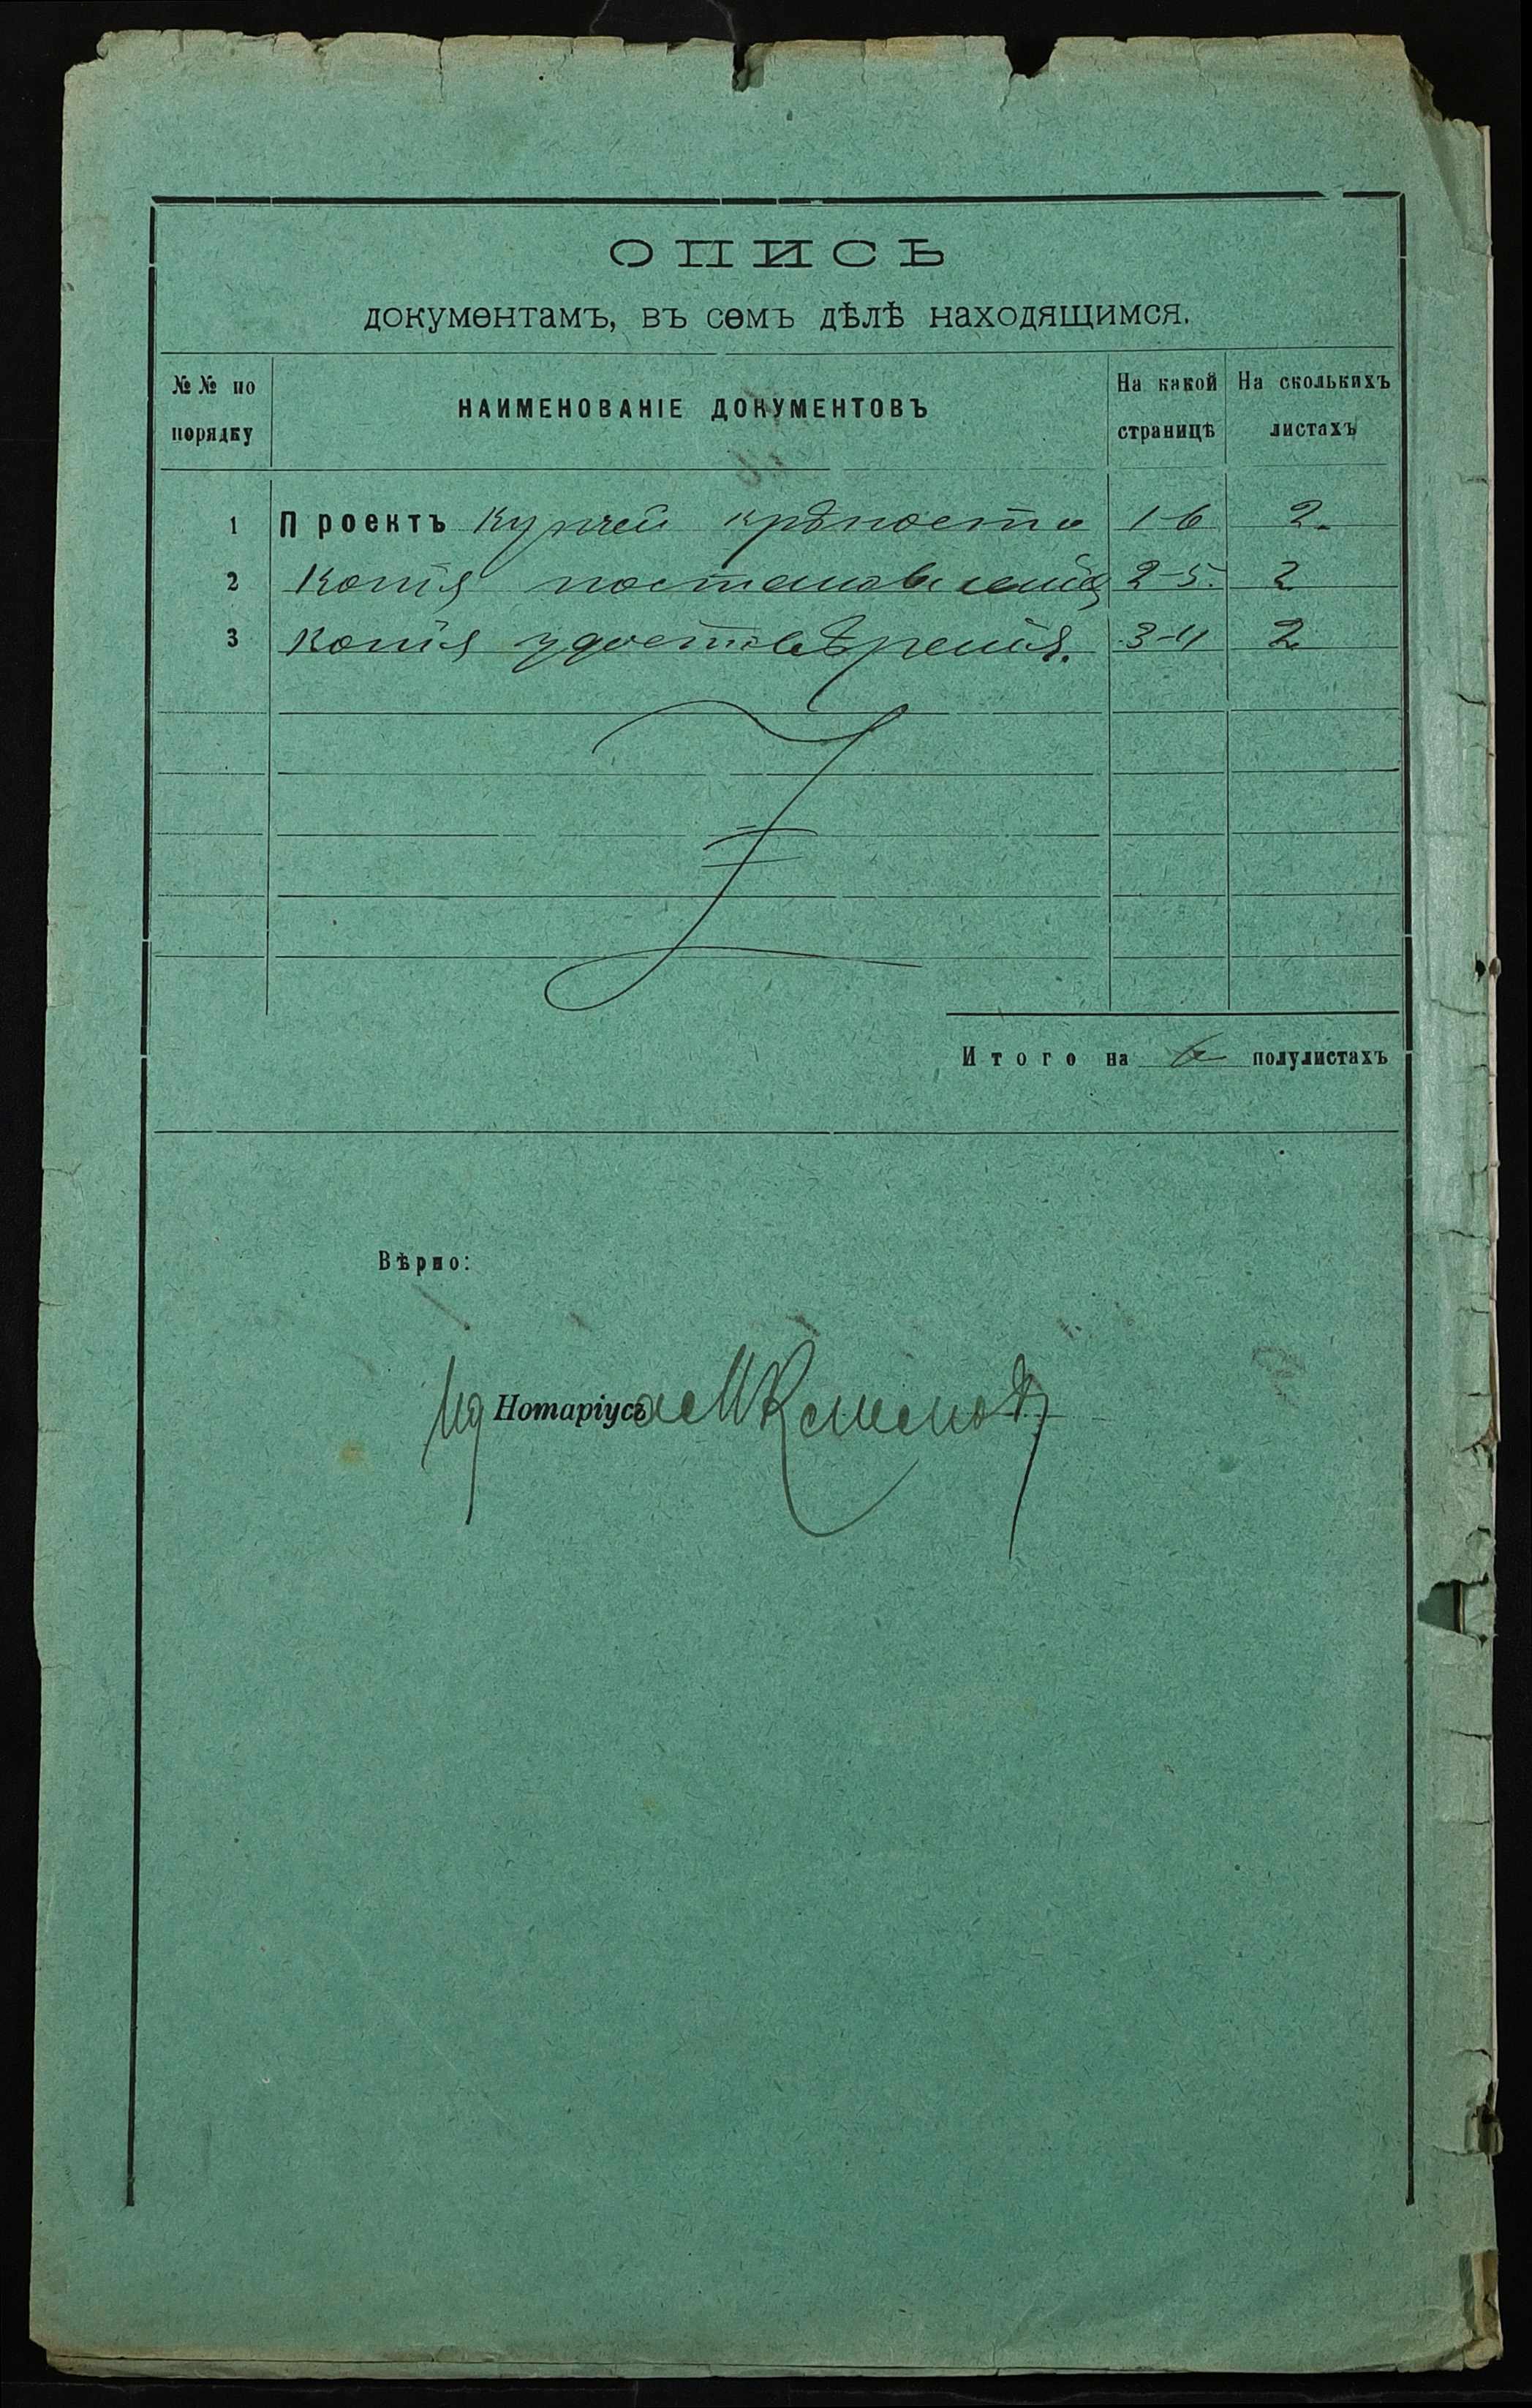 ОПИСЬ
документамъ, въ семъ дѣлѣ находящимся.
№№ по порядку НАИМЕНОВАНІЕ ДОКУМЕНТОВЪ На какой страницѣ На сколькихъ листахъ
1 Проектъ купчей крѣпости 1-6 2.
2 Копія постановленія 2-5. 2
3 Копія удостовѣренія. 3-4 2
Итого на 6 полулистахъ
Вѣрно:
Ид Нотаріуса